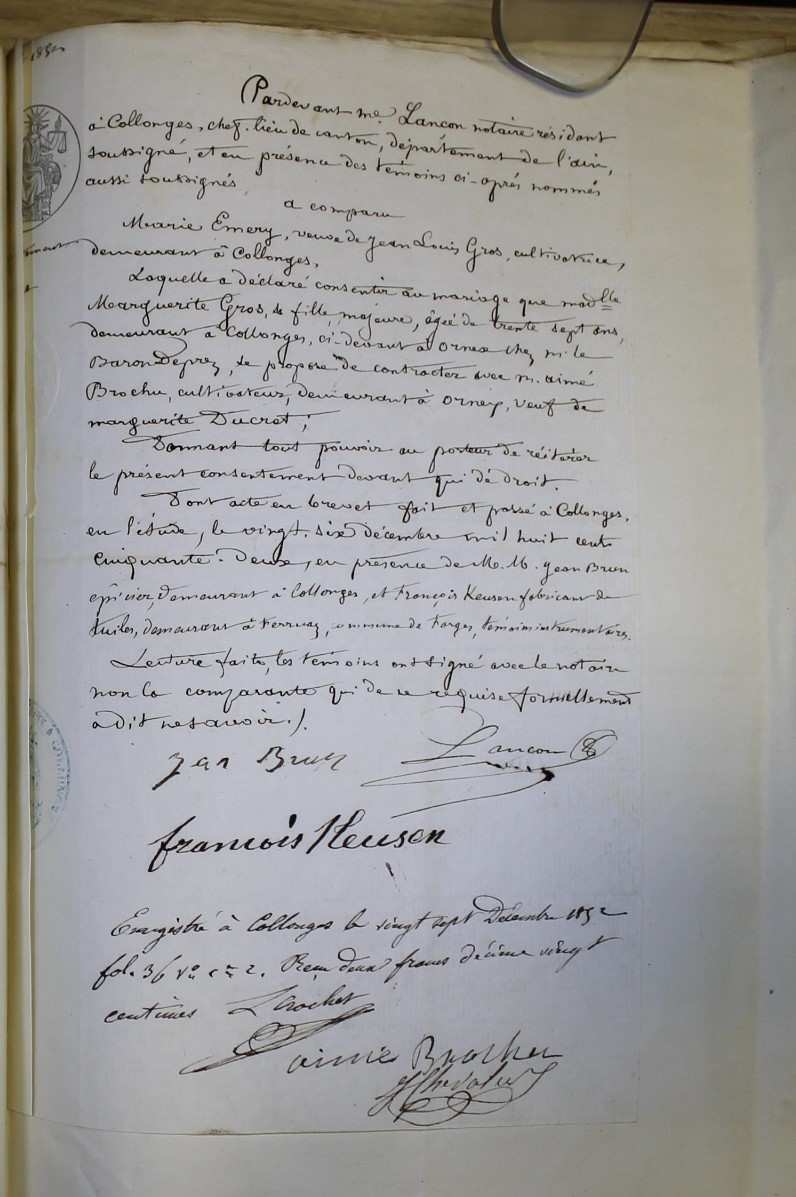 1852
Pardevant me Lançon notaire résidant
à Collonges, chef-lieu de canton, département de l'ain,
soussigné, et en présence des témoins ci-après nommés
aussi soussignés
a comparu
Marie Emery, veuve de Jean Louis Gros, cultivatrice,
demeurant à Collonges,
Laquelle a déclaré consentir au mariage que madelle
Marguerite Gros, sa fille majeure, âgée de trente sept ans,
demeurant à Collonges, ci-devant à Ornex chez m. le
Baron Deprez, se propose de contracter avec m. aimé
Brochu, cultivateur, demeurant à Ornex, veuf de
marguerite Ducret;
Donnant tout pouvoir au porteur de réitérer
le présent consentement devant qui de droit.
Dont acte en brevet fait et passé à Collonges,
en l'étude, le vingt-six décembre mil huit cent
cinquante-deux, en présence de M. M. Jean Brun
épicier, demeurant à Collonges, et François Keusen fabricant de
tuiles, demeurant à Farges, témoins instrumentaires.
Lecture faite, les témoins ont signé avec le notaire
non la comparante qui de ce requise formellement
a dit ne savoir./.
Jean Brun Lançon
francois Keusen
Enregistré à Collonges le vingt sept Décembre 1852
fol. 36 vo ce 2. Reçu deux francs décime vingt
centimes
aimé Brochu